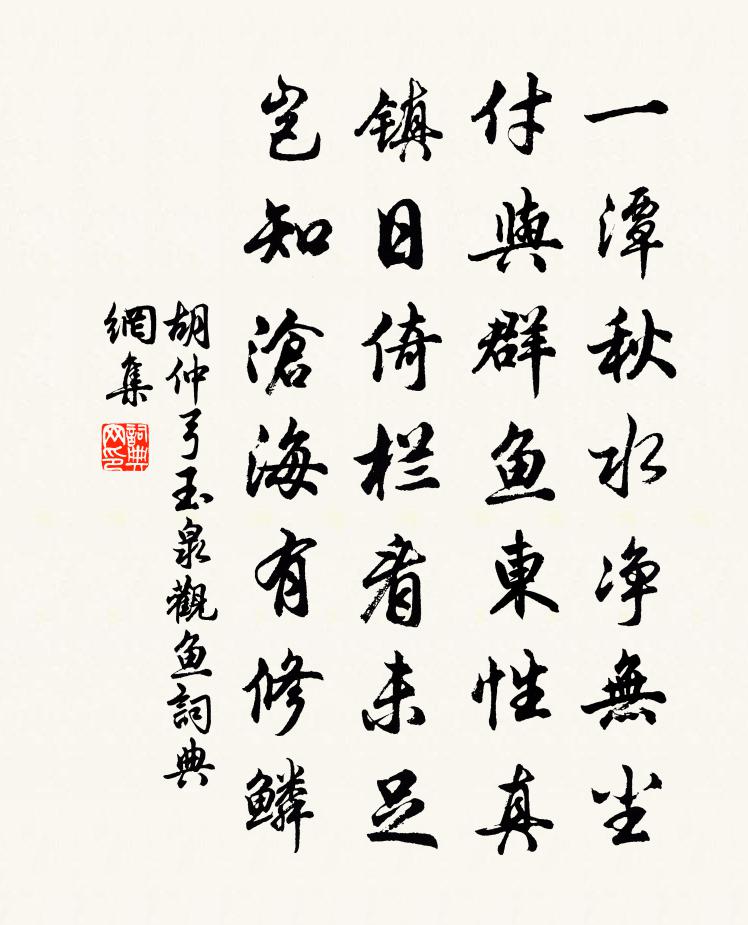 一潭秋水净無尘
付與群鱼東性真
镇日倚栏看未足
岂知滄海有修鳞
胡仲弓玉泉觀鱼詞典
網集
詞典网印